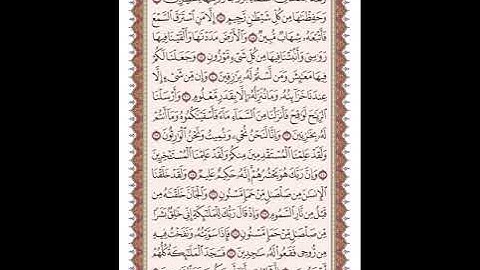 وَحَفِظْنَٰهَا مِن كُلِّ شَيْطَٰنٍ رَّجِيمٍ ۝ إِلَّا مَنِ ٱسْتَرَقَ ٱلسَّمْعَ
فَأَتْبَعَهُۥ شِهَابٌ مُّبِينٌ ۝ وَٱلْأَرْضَ مَدَدْنَٰهَا وَأَلْقَيْنَا فِيهَا
رَوَٰسِىَ وَأَنۢبَتْنَا فِيهَا مِن كُلِّ شَىْءٍ مَّوْزُونٍ ۝ وَجَعَلْنَا لَكُمْ
فِيهَا مَعَٰيِشَ وَمَن لَّسْتُمْ لَهُۥ بِرَٰزِقِينَ ۝ وَإِن مِّن شَىْءٍ إِلَّا
عِندَنَا خَزَآئِنُهُۥ وَمَا نُنَزِّلُهُۥٓ إِلَّا بِقَدَرٍ مَّعْلُومٍ ۝ وَأَرْسَلْنَا
ٱلرِّيَٰحَ لَوَٰقِحَ فَأَنزَلْنَا مِنَ ٱلسَّمَآءِ مَآءً فَأَسْقَيْنَٰكُمُوهُ وَمَآ أَنتُمْ لَهُۥ
بِخَٰزِنِينَ ۝ وَإِنَّا لَنَحْنُ نُحْىِۦ وَنُمِيتُ وَنَحْنُ ٱلْوَٰرِثُونَ ۝
وَلَقَدْ عَلِمْنَا ٱلْمُسْتَقْدِمِينَ مِنكُمْ وَلَقَدْ عَلِمْنَا ٱلْمُسْتَـْٔخِرِينَ
۝ وَإِنَّ رَبَّكَ هُوَ يَحْشُرُهُمْ إِنَّهُۥ حَكِيمٌ عَلِيمٌ ۝ وَلَقَدْ خَلَقْنَا
ٱلْإِنسَٰنَ مِن صَلْصَٰلٍ مِّنْ حَمَإٍ مَّسْنُونٍ ۝ وَٱلْجَآنَّ خَلَقْنَٰهُ مِن
قَبْلُ مِن نَّارِ ٱلسَّمُومِ ۝ وَإِذْ قَالَ رَبُّكَ لِلْمَلَٰٓئِكَةِ إِنِّى خَٰلِقٌۢ بَشَرًا
مِّن صَلْصَٰلٍ مِّنْ حَمَإٍ مَّسْنُونٍ ۝ فَإِذَا سَوَّيْتُهُۥ وَنَفَخْتُ فِيهِ
مِن رُّوحِى فَقَعُوا۟ لَهُۥ سَٰجِدِينَ ۝ فَسَجَدَ ٱلْمَلَٰٓئِكَةُ كُلُّهُمْ